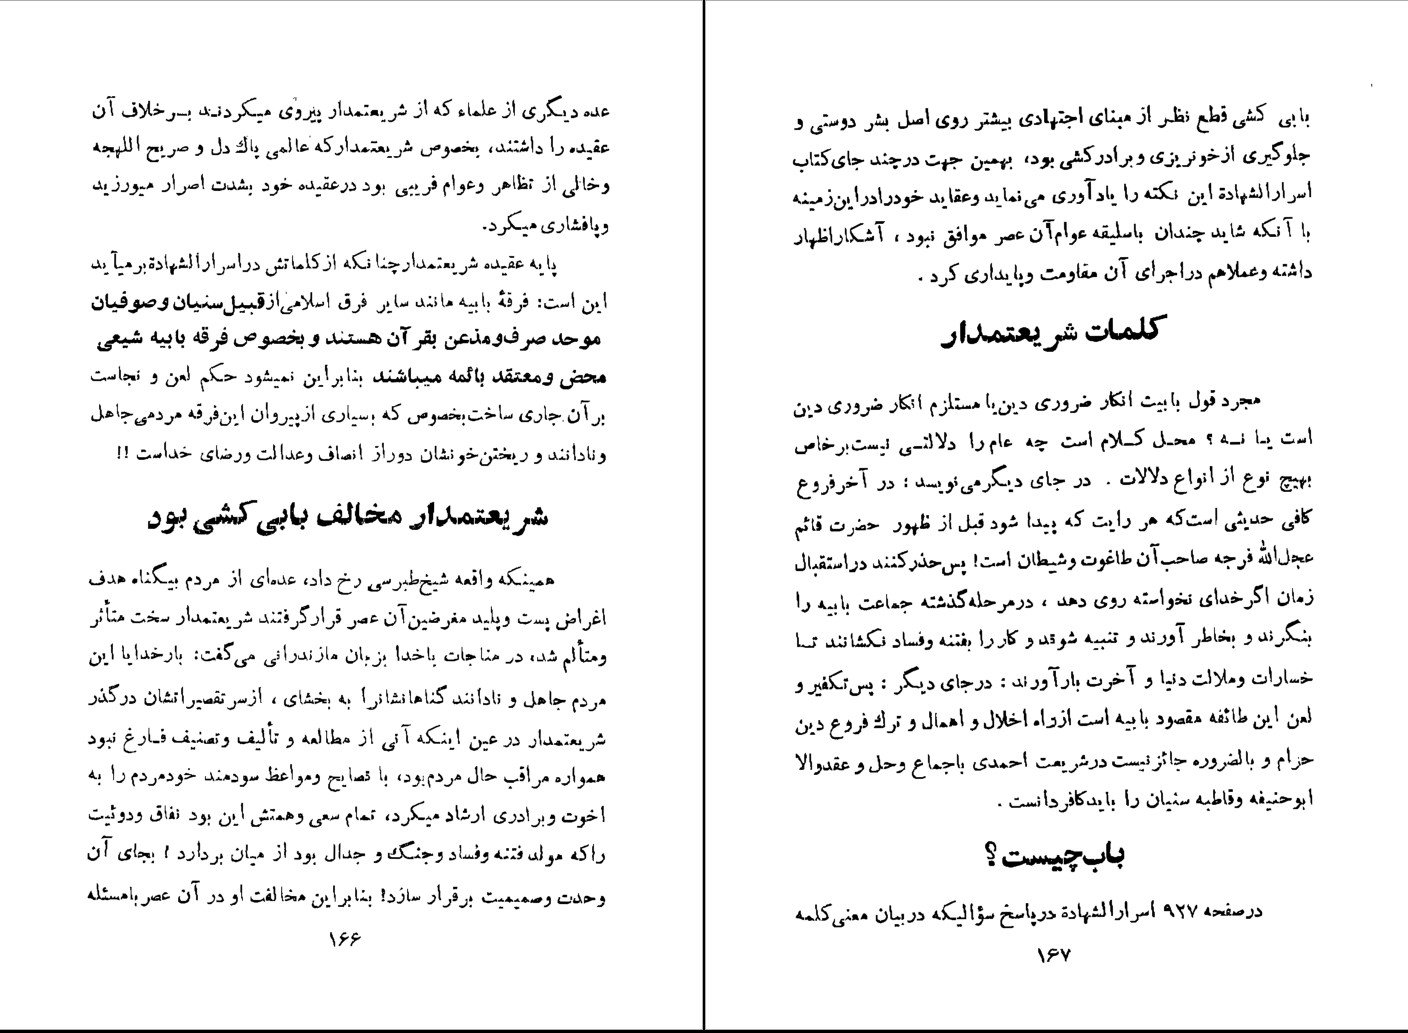 عده دیگری از علماء که از شریعتمدار پیروی میکردند بسرخلاف آن
عقیده را داشتند، بخصوص شریعتمدارکه عالمی پاك دل و صریح اللهجه
وخالی از تظاهر وعوام فریبی بود درعقیده خود بشدت اصرار میورزید
وپافشاری میکرد.
پایه عقیده شریعتمدارچنانکه ازکلماتش دراسرارالشهادةبرمیآید
این است: فرقهٔ بابیه مانند سایر فرق اسلامی‌ازقبیل‌سنیان وصوفیان
موحد صرف‌ومذعن بقرآن هستند وبخصوص فرقه بابیه شیعی
محض ومعتقد بائمه میباشند بنابراین نمیشود حکم لعن و نجاست
برآن جاری ساخت‌بخصوص که بسیاری ازپیروان این‌فرقه مردمی‌جاهل
ونادانند و ریختن‌خونشان دوراز انصاف وعدالت ورضای خداست !!
شریعتمدار مخالف بابی کشی بود
همینکه واقعه شیخ‌طبرسی رخ داد، عده‌ای از مردم بیگناه هدف
اغراض پست وپلید مغرضین‌آن عصر قرارگرفتند شریعتمدار سخت متأثر
ومتألم شد، در مناجات باخدا بزبان مازندرانی می‌گفت: بارخدایا این
مردم جاهل و نادانند گناهانشانرا به بخشای ، ازسرتقصیراتشان درگذر
شریعتمدار در عین اینکه آنی از مطالعه و تألیف وتصنیف فارغ نبود
همواره مراقب حال مردم‌بود، با نصایح ومواعظ سودمند خودمردم را به
اخوت وبرادری ارشاد میکرد، تمام سعی وهمتش این بود نفاق ودوئیت
راکه مولد فتنه وفساد وجنگ و جدال بود از میان بردارد ! بجای آن
وحدت وصمیمیت برقرار سازد! بنابراین مخالفت او در آن عصربامسئله
۱۶۶
بابی کشی قطع نظر از مبنای اجتهادی بیشتر روی اصل بشر دوستی و
جلوگیری ازخونریزی وبرادرکشی بود، بهمین جهت درچند جای‌کتاب
اسرارالشهادة این نکته را یادآوری می‌نماید وعقاید خودرادراین‌زمینه
با آنکه شاید چندان باسلیقه عوام‌آن عصر موافق نبود ، آشکاراظهار
داشته وعملاهم دراجرای آن مقاومت وپایداری کرد .
کلمات شریعتمدار
مجرد قول بابیت انکار ضروری دین‌یا مستلزم انکار ضروری دین
است یا نه ؟ محل کلام است چه عام را دلالتی نیست‌برخاص
بهیچ نوع از انواع دلالات . در جای دیگرمی‌نویسد : در آخرفروع
کافی حدیثی است‌که هر رایت که پیدا شود قبل از ظهور حضرت قائم
عجل‌الله فرجه صاحب‌آن طاغوت وشیطان است! پس‌حذرکنند دراستقبال
زمان اگرخدای نخواسته روی دهد ، درمرحله‌گذشته جماعت بابیه را
بنگرند و بخاطر آورند و تنبیه شوند و کار را بفتنه وفساد نکشانند تا
خسارات وملالت دنیا و آخرت بارآورند : درجای دیگر : پس‌تکفیر و
لعن این طائفه مقصود بابیه است ازراه اخلال و اهمال و ترك فروع دین
حرام و بالضروره جائزنیست درشریعت احمدی باجماع وحل و عقدوالا
ابوحنیفه وقاطبه سنیان را بایدکافردانست .
باب‌چیست؟
درصفحه ۹۲۷ اسرارالشهادة درپاسخ سؤالیکه دربیان معنی‌کلمه
۱۶۷